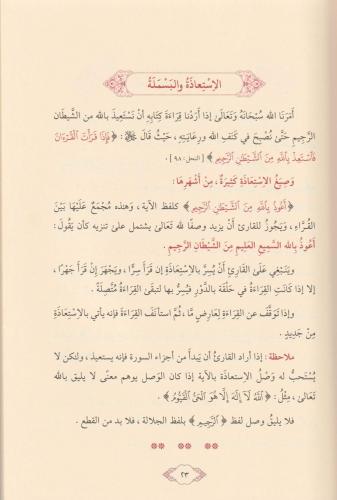 الاِسْتِعاذَةُ والبَسْمَلَةُ
أَمَرَنَا الله سُبْحَانَهُ وَتَعَالَىٰ إِذَا أَرَدْنا قِرَاءَةَ كِتَابِهِ أَنْ نَسْتَعِيذَ بالله من الشَّيطَان
الرَّجِيمِ حَتَّىٰ نُصْبِحَ في كَنَفِ الله ورِعَايَتِهِ، حَيْثُ قَالَ ﷻ: ﴿فَإِذَا قَرَأْتَ ٱلْقُرْءَانَ
فَٱسْتَعِذْ بِٱللَّهِ مِنَ ٱلشَّيْطَٰنِ ٱلرَّجِيمِ﴾ [النحل: ٩٨].
وَصِيَغُ الاِسْتِعَاذَةِ كَثِيرَةٌ، مِنْ أَشْهَرِهَا:
﴿أَعُوذُ بِٱللَّهِ مِنَ ٱلشَّيْطَٰنِ ٱلرَّجِيمِ﴾ كلفظ الآية، وَهٰذِه مُجْمَعٌ عَلَيْهَا بَيْنَ
القُرَّاءِ، وَيَجُوزُ للقارئ أَنْ يزيد وصفًا لله تَعَالَىٰ يشتمل علىٰ تنزيه كأن يقُولَ:
أَعُوذُ بِالله السَّمِيعِ العَلِيمِ مِنَ الشَّيْطَانِ الرَّجِيمِ.
وَيَنْبَغِي عَلَىٰ القَارِئِ أَنْ يُسِرَّ بالاِسْتِعَاذَةِ إِن قَرَأَ سِرًّا، وَيَجْهَرَ إِنْ قَرَأَ جَهْرًا،
إلا إذا كَانَتِ القِرَاءَةُ في حَلْقَة بالدَّوْرِ فيُسِرُّ بها لتبقَىٰ القِرَاءَةُ مُتَّصِلَةً.
وإذا تَوَقَّفَ عن القِرَاءةِ لِعَارِضٍ مَّا، ثُمَّ استأنَفَ القِرَاءةَ فإنه يأتي بالاِسْتِعَاذَةِ
مِنْ جَدِيدٍ.
ملاحظة: إذا أراد القارئُ أن يَبدأَ من أجزاء السورة فإنه يستعيذ، ولكن لا
يُسْتَحبُّ له وَصْلُ الاِستعاذة بالآية إذا كان الوَصل يوهم معنًى لا يليق بالله
تَعَالَىٰ، مِثْلُ: ﴿ٱللَّهُ لَآ إِلَٰهَ إِلَّا هُوَ ٱلْحَىُّ ٱلْقَيُّومُ﴾.
فلا يليقُ وصل لفظ ﴿ٱلرَّجِيمِ﴾ بلفظ الجلالة، فلا بد من القطع.
٢٣